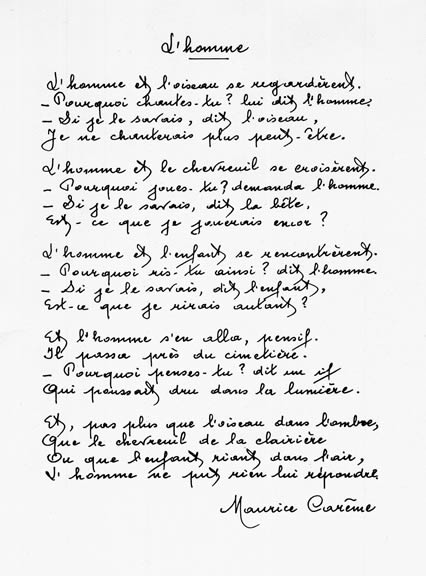 L'homme
L'homme et l'oiseau se regardèrent.
- Pourquoi chantes-tu? lui dit l'homme.
- Si je le savais, dit l'oiseau,
Je ne chanterais plus peut-être.
L'homme et le chevreuil se croisèrent.
- Pourquoi joues-tu? demanda l'homme.
- Si je le savais, dit la bête,
Est-ce que je jouerais encor?
L'homme et l'enfant se rencontrèrent.
- Pourquoi ris-tu ainsi? dit l'homme.
- Si je le savais, dit l'enfant,
Est-ce que je rirais autant?
Et l'homme s'en alla, pensif.
Il passa près du cimetière.
- Pourquoi penses-tu? dit un if
Qui poussait dru dans la lumière.
Et, pas plus que l'oiseau dans l'ombre,
Que le chevreuil de la clairière
Ou que l'enfant riant dans l'air,
L'homme ne put rien lui répondre.
Maurice Carême